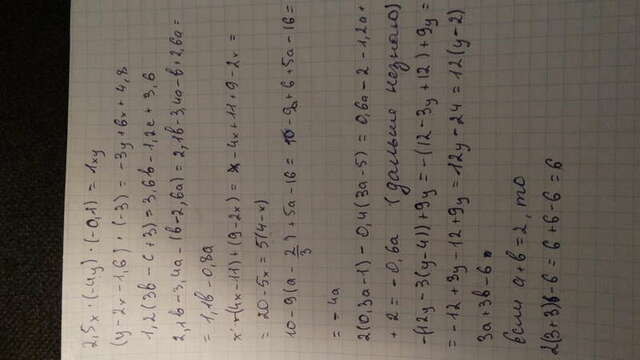 2,5x · (-4y) : (-0,1) = 1xy
(y - 2x - 1,6) · (-3) = -3y + 6x + 4,8
1,2(3b - c + 3) = 3,6b - 1,2c + 3,6
2,1b - 3,4a - (b - 2,6a) = 2,1b - 3,4a - b + 2,6a =
= 1,1b - 0,8a
x - (4x - 11) + (9 - 2x) = x - 4x + 11 + 9 - 2x =
= 20 - 5x = 5(4 - x)
10 - 9(a - 2/3) + 5a - 16 = 10 - 9a + 6 + 5a - 16 =
= -4a
2(0,3a - 1) - 0,4(3a - 5) = 0,6a - 2 - 1,2a +
+ 2 = -0,6a (дальше незнаю)
-(12y - 3(y - 4)) + 9y = -(12 - 3y + 12) + 9y =
= -12 + 3y - 12 + 9y = 12y - 24 = 12(y - 2)
3a + 3b - 6
Если a + b = 2, то
2(3 + 3) - 6 = 6 + 6 - 6 = 6